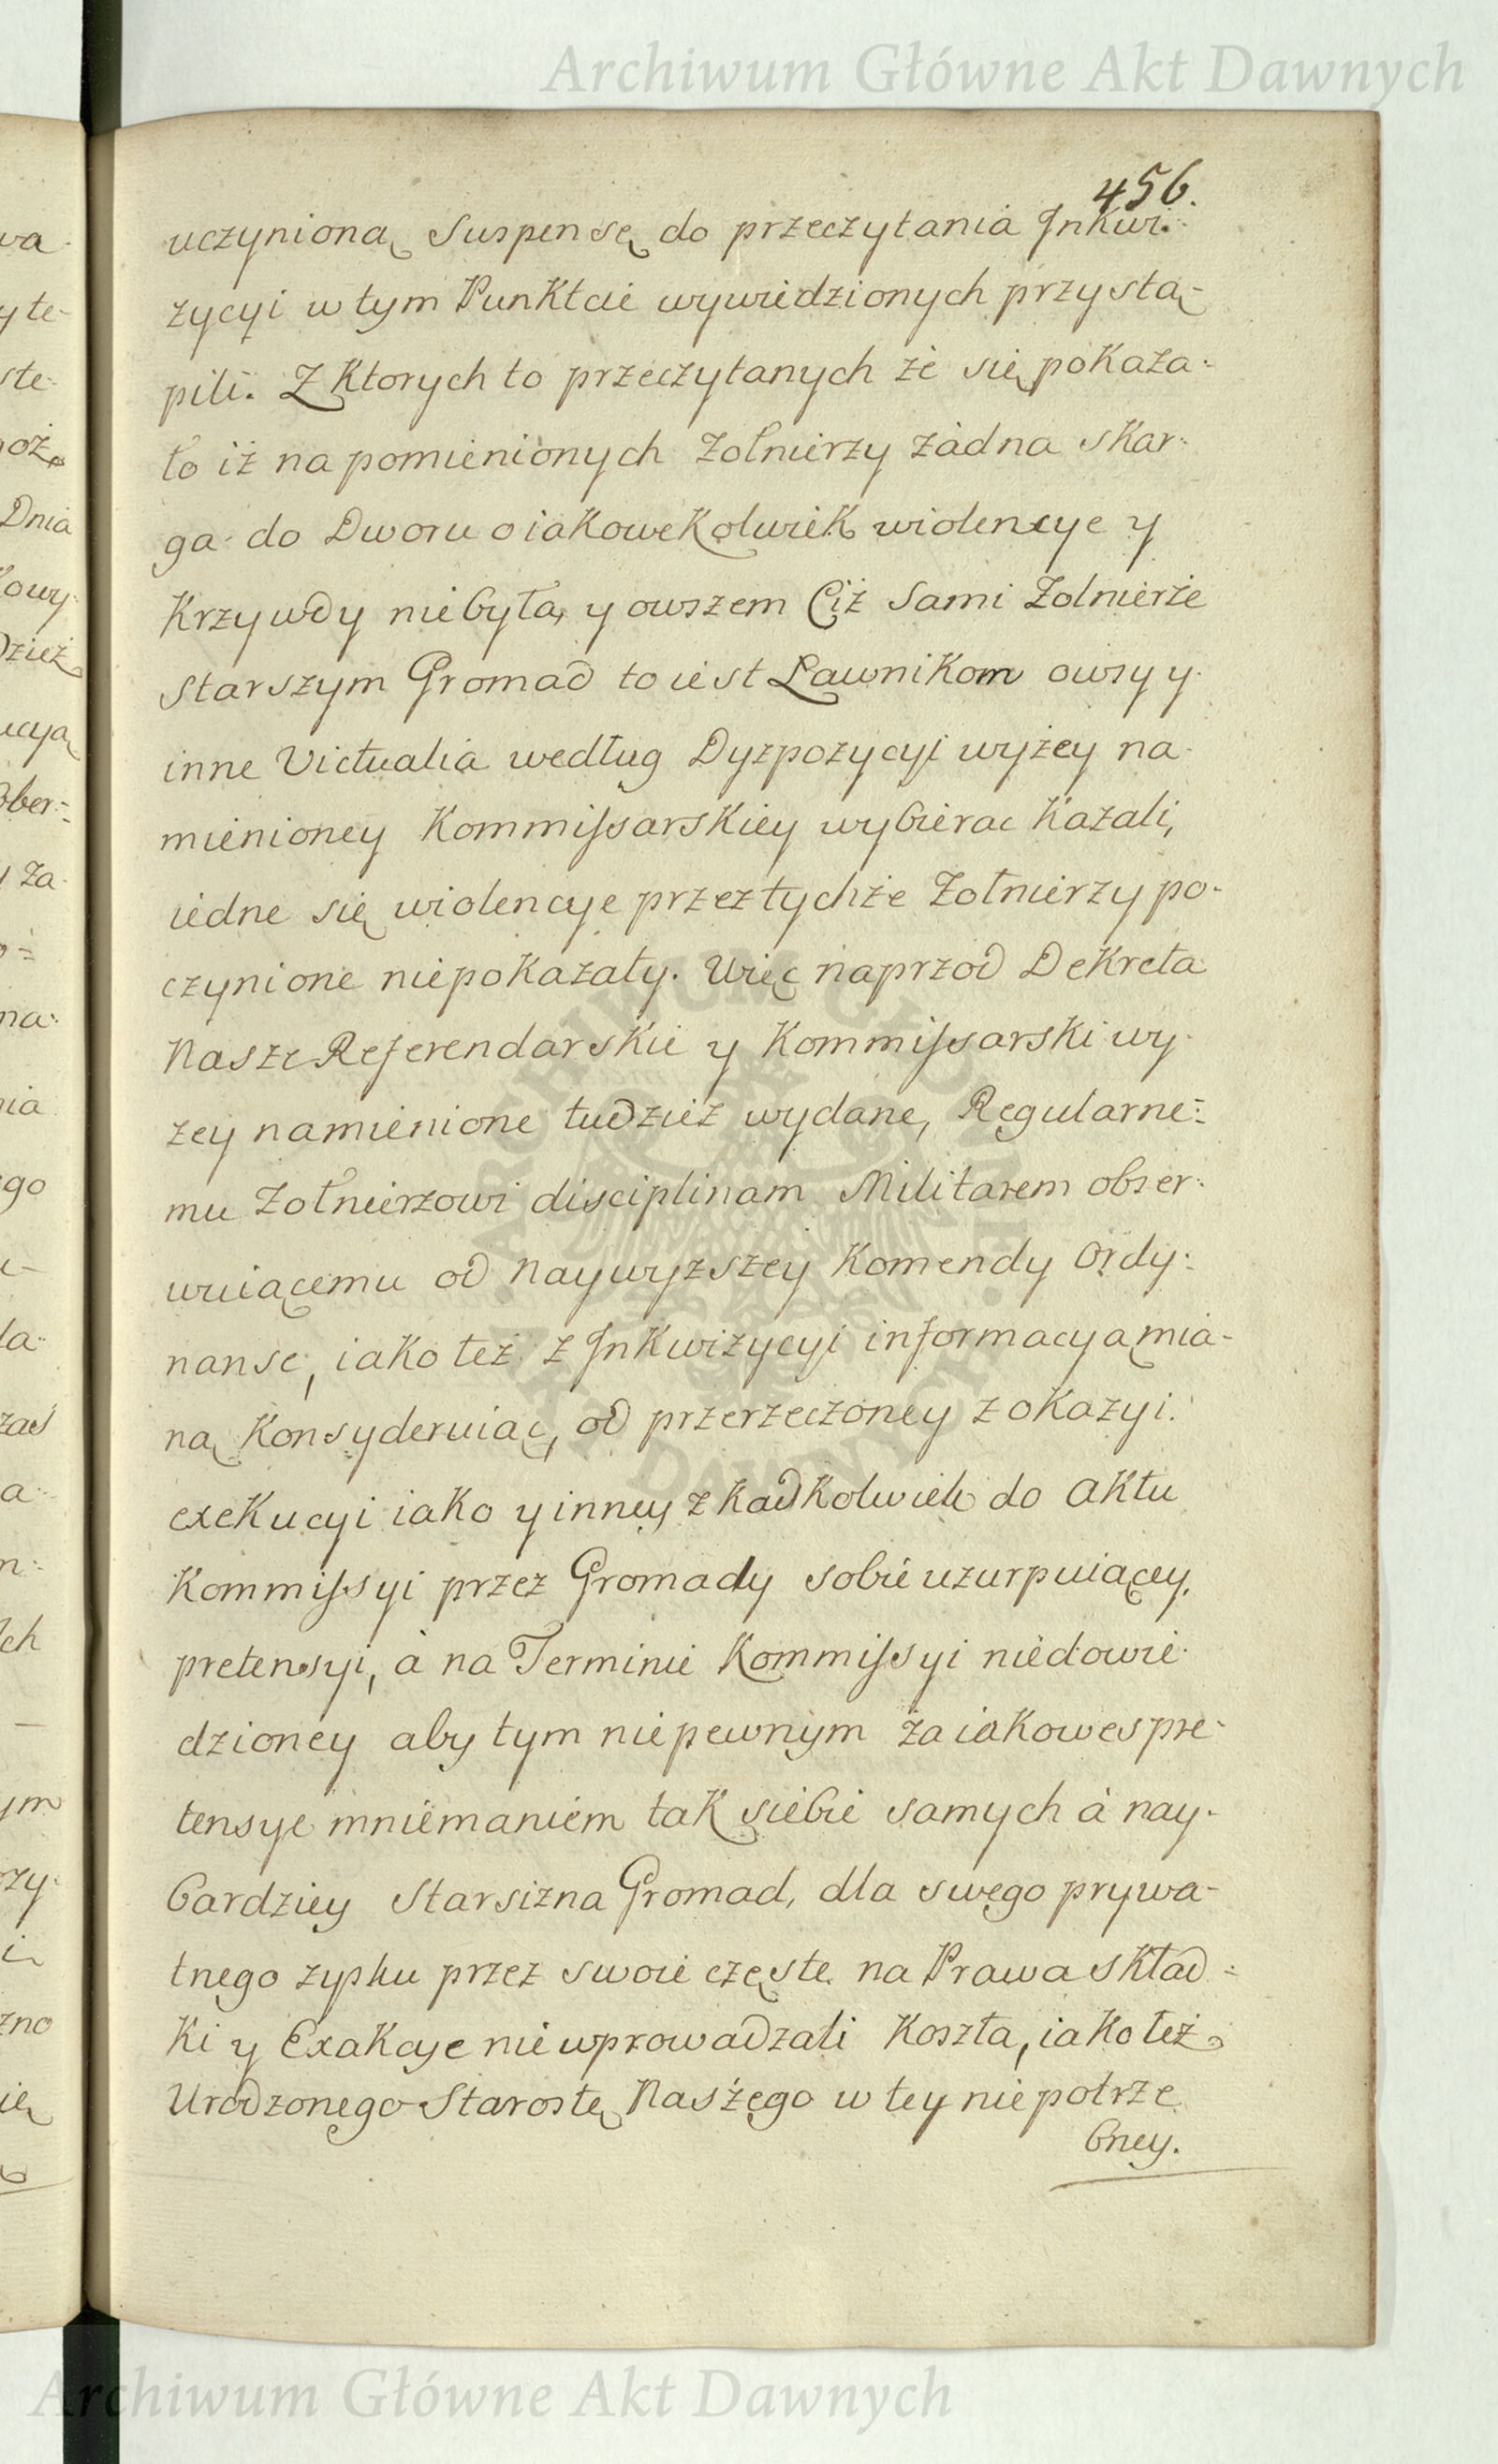 Archiwum Główne Akt Dawnych
456.
uczynioną Suspensę do przeczytania Jnkwi:
zycyi w tym Punktcie wywiedzionych przystą-
pili. Z Ktorych to przeczytanych że się pokaza:
ło iż na pomienionych Zołnierzy żadna skar:
ga do Dworu o iakowekolwiek wiolencye y
Krzywdy niebyła, y owszem Ciż Sami Zolnierze
starszym Gromad to iest Ławnikom owsy y
inne Victualia według Dyzpozycyi wyżey na
mienioney Kommissarskiey wybierac Kazali,
iedne się wiolencye przez tychże Zołnierzy po-
czynione niepokazały. Więc naprzod Dekreta
Nasze Referendarskie y Kommissarski wy-
zey namienione tudzież wydane, Regularne:
mu Zołnierzowi disciplinam Militarem obser:
wuiącemu od Naywyzszey Komendy Ordy:
nanse, iako też z Jnkwizycyi informacyą mia-
ną Konsyderuiąc, od przerzeczoney z okazyi
exekucyi iako y inney zkadkolwiek do Aktu
Kommissyi przez Gromady sobie uzurpuiącey,
pretensyi, à na Terminie Kommissyi niedowie-
dzioney aby tym niepewnym za iakowes pre-
tensye mniemaniem tak siebie samych à nay-
bardziey Starsizna Gromad, dla swego prywa-
tnego zysku przez swoie częste na Prawa skład-
ki y Exakcye nie wprowadzali Koszta, iako też
Urodzonego Starostę Naszego w tey niepotrze
bney.
Archiwum Główne Akt Dawnych